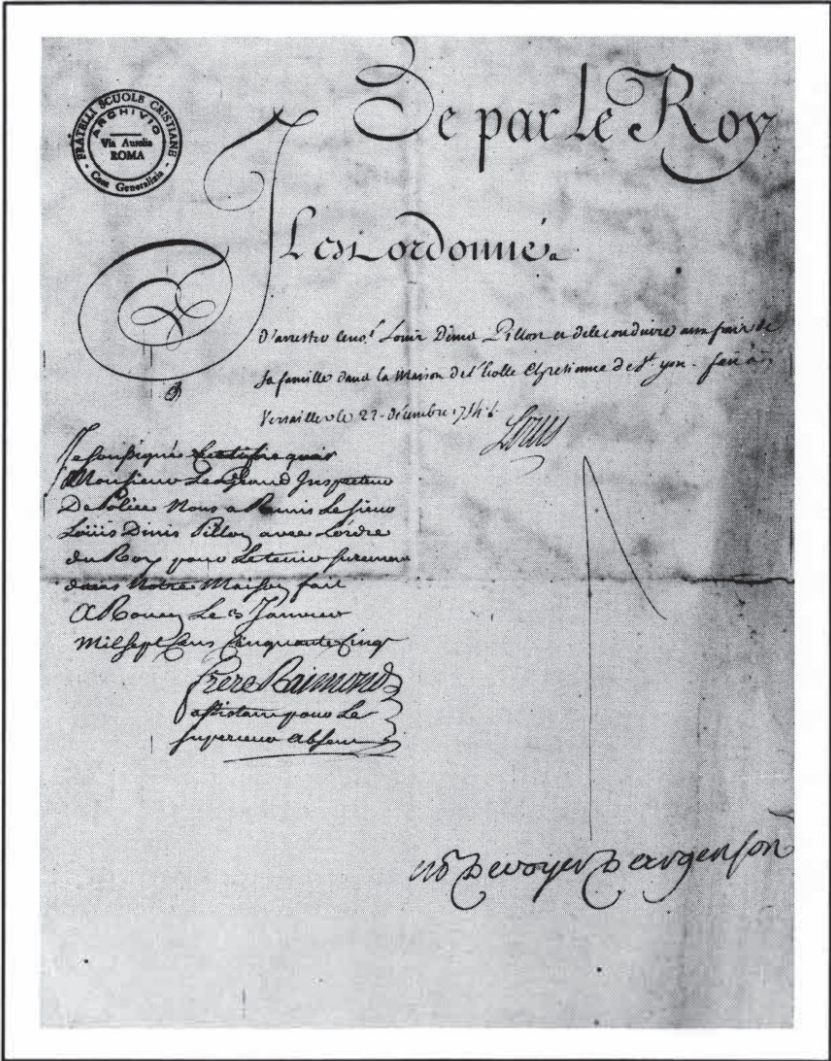 FRATELLI SCUOLE CRISTIANE
ARCHIVIO
Via Aurelia
ROMA
Casa Generalizia
De par Le Roy
Il est ordonné
D'arrester le no.é Louis Denis Pillon et de le conduire aux frais de
sa famille dans la Maison de l'Ecolle Chretienne de St yon. fait à
Versailles le 22 décembre 1754
Louis
Je soussigné Certiffie que
Monsieur Le Grand Inspecteur
De Police Nous a Remis Le sieur
Loüis Dinis Pillon avec Lordre
du Roy pour Le tenir surement
dans Notre Maison fait
A Rouen Le 3 Janvier
Mil Sept Cens Cinquante Cinq
Frere Raimond
assistant pour Le
superieur absent
De voyer D'argenson